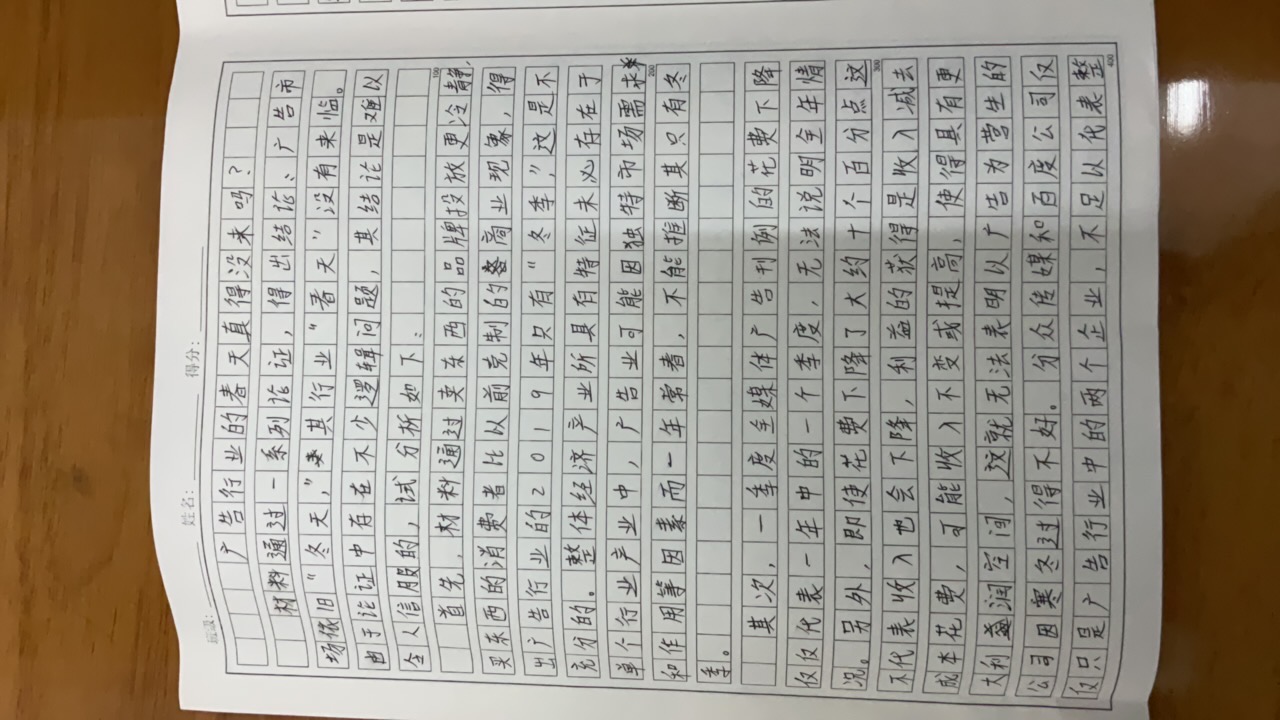 班级： 姓名： 得分：
广告行业的春天真得没来吗？
材料通过一系列论证，得出结论、广告市
场依旧“冬天，”其行业“春天”没有来临。
由于论证中存在不少逻辑问题，其结论是难以
令人信服的，试分析如下：
首先，材料通过买东西的品牌投放更冷静，
100
买东西的消费者比以前克制的商业现象，得
出广告行业的2019年只有“冬季，”这是不
充分的。整体经济产业所具有特征未必存在于
单个行业产业中，广告业可能因独特市场需求
200
和作用等因素而一年常春，不能推断其只有冬
季。
其次，一季度全媒体广告刊例的花费下降
仅仅代表一年中的一个季度，无法说明全年情
况。另外，即使花费下降了大约十个百分点这
300
不代表收入也会下降，利益的获得是收入减去
成本花费，可能收入不变或提高，使得具有更
大利润空间，这就无法表明以广告为营生的
公司因寒冬过得不好。分众传媒和百度公司仅
仅只是广告行业中的两个企业，不足以代表整
400